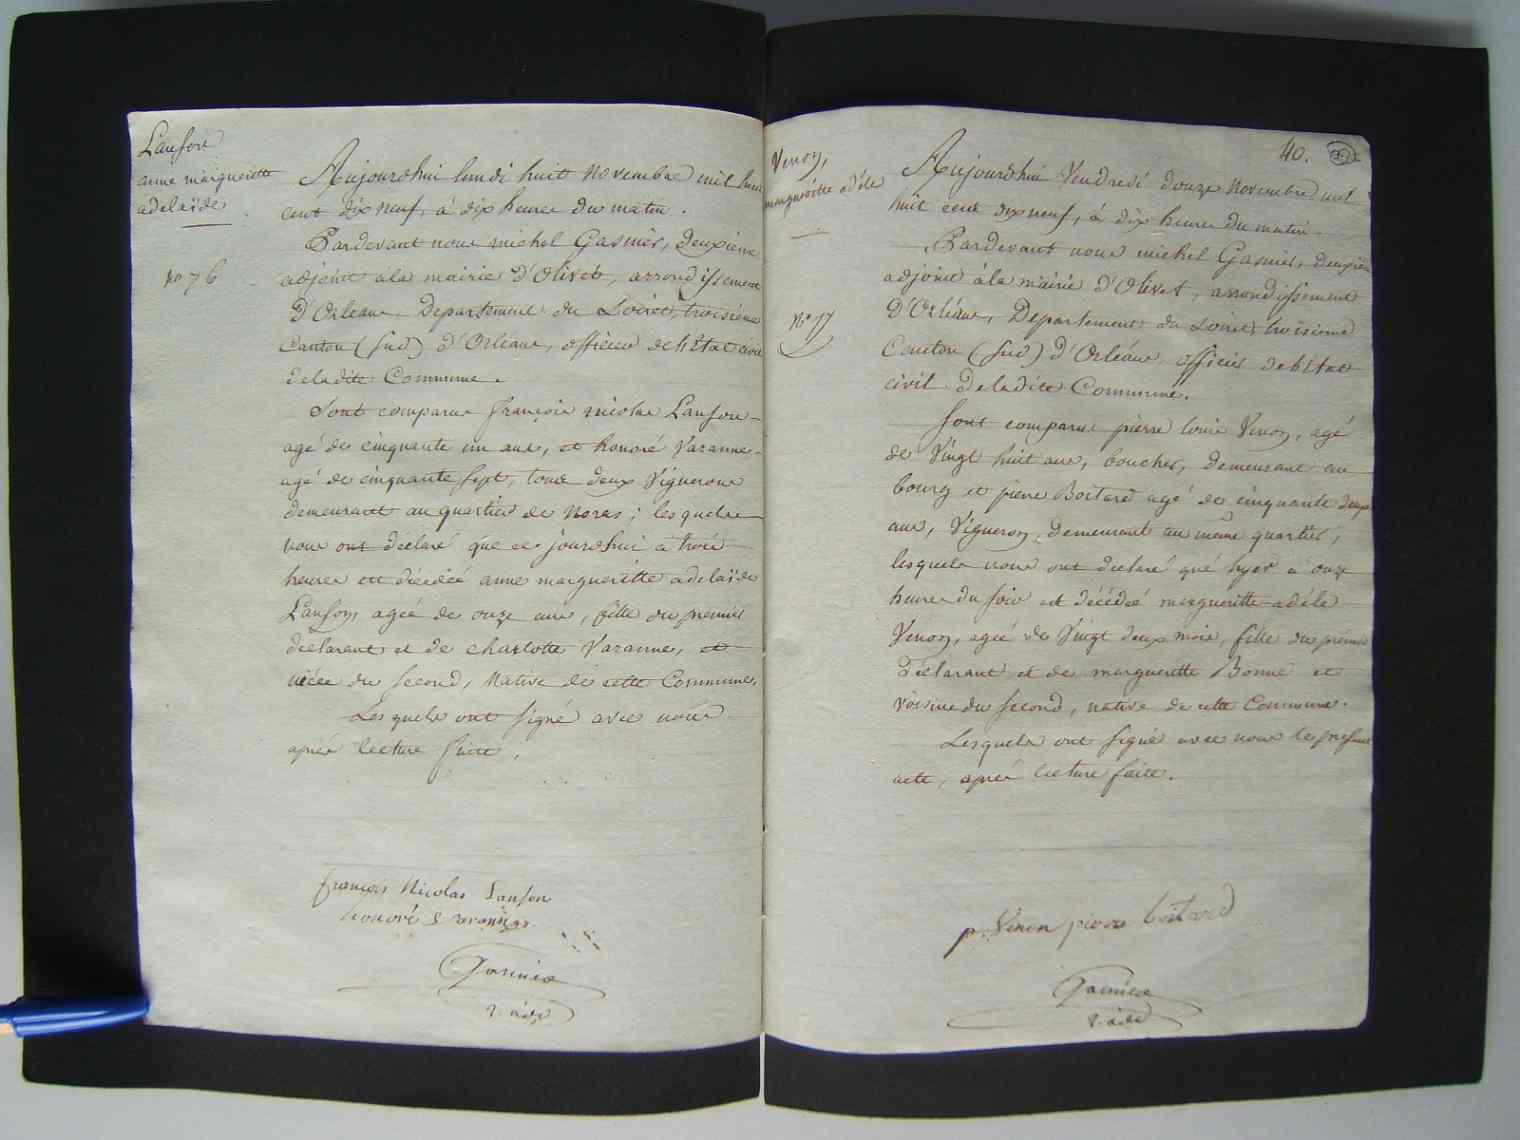 Lanson
anne margueritte
adelaïde
No 76
Aujourdhui lundi huit novembre mil huit
cent dix neuf, à dix heures du matin.
Pardevant nous michel Gasnier, deuxieme
adjoint à la mairie d'Olivet, arrondissement
d'Orleans, Departement du Loiret, troisième
Canton (sud) d'Orléans, officier de l'état civil
de ladite Commune.
Sont comparus françois nicolas Lanson
agé de cinquante un ans, et honoré Varanne
agé de cinquante sept, tous deux Vignerons
demeurant au quartier de Noras; lesquels
nous ont déclaré que ce jourdhui à trois
heures est décédée anne margueritte adelaïde
Lanson, agée de onze ans, fille du premier
déclarant et de charlotte Varanne, et
niéce du second, Native de cette Commune.
Lesquels ont signé avec nous
après lecture faite.
françois Nicolas Lanson
honoré
Gasnier
Vinon,
margueritte adéle
No 77
40.
Aujourdhui Vendredi douze novembre mil
huit cent dix neuf, à dix heures du matin.
Pardevant nous michel Gasnier, deuxième
adjoint à la mairie d'Olivet, arrondissement
d'Orléans, Departement du Loiret, troisieme
Canton (sud) d'Orléans, officier de l'état
civil de ladite Commune.
Sont comparus pierre louis Vinon, agé
de Vingt huit ans, boucher, demeurant au
bourg et pierre Boitard agé de cinquante deux
ans, Vigneron, demeurant au même quartier,
lesquels nous ont declaré qué hyer à onze
heures du soir est décédeé margueritte adéle
Vinon, ageé de Vingt deux mois, fille du premier
déclarant et de margueritte Bonne et
voisine du second, native de cette Commune.
Lesquels ont signé avec nous le present
acte, après lecture faite.
p. Vinon pierre boitard
Gasnier